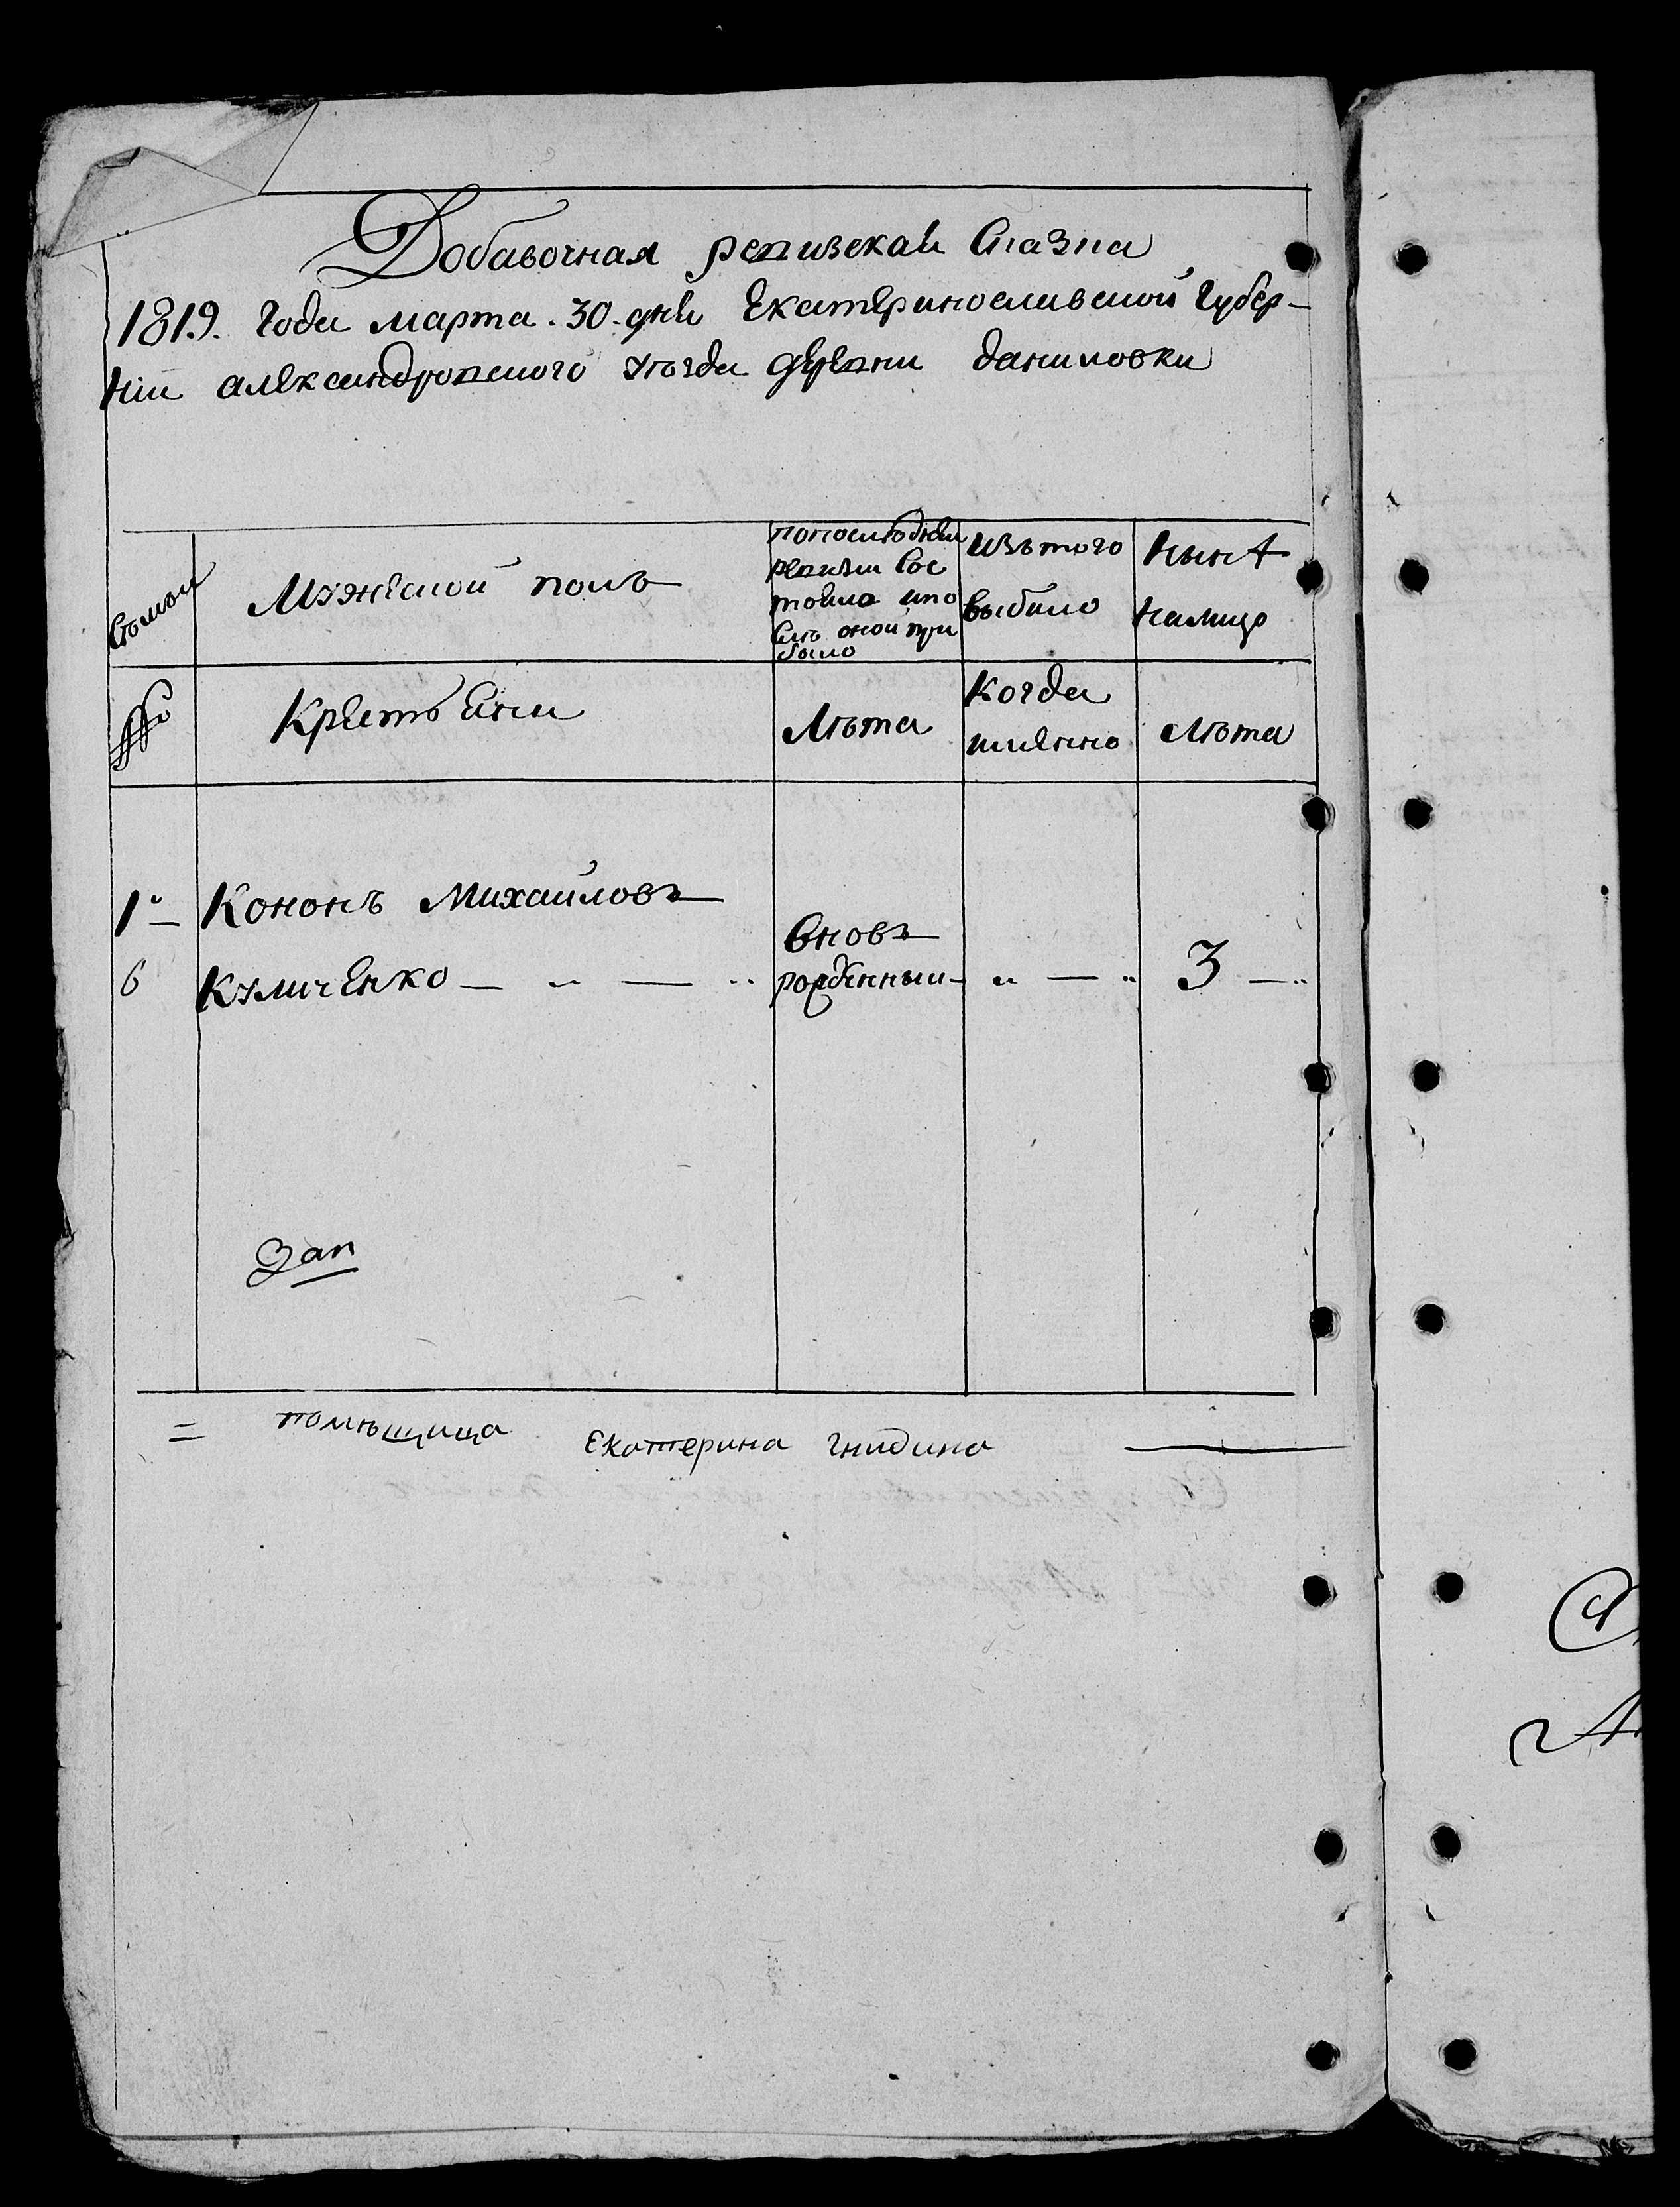 Добавочная ревизская Сказка
1819. Года марта. 30. дня Екатеринославской Губер-
ніи александровского уезда деревни даниловки
Съмьи
Мужеской полъ
попоследней
ревизіи Сос
тояло ипо
Слъ оной при
было
Изътого
выбыло
Нынѣ
Налицо
№№
Крестьяне
Лѣта
Когда
имянно
Лѣта
1. Кононъ Михаиловъ
6 Куличенко
Вновь
рожденный
3
Зап
помѣщица Екатерина гнидина